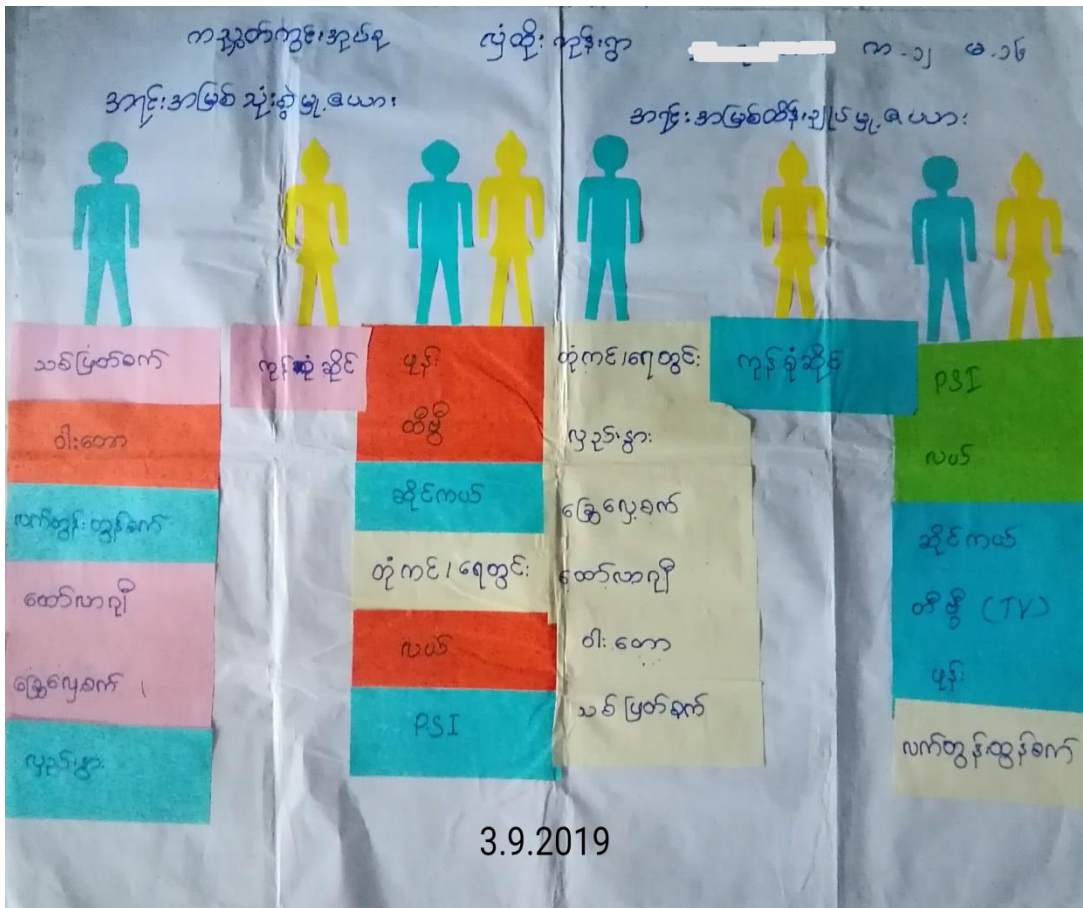 ကညွတ်ကွင်းအုပ်စု လှံထိုးကုန်းရွာ က.၁၂ မ.၁၆
အရင်းအမြစ်သုံးစွဲမှုဇယား
အရင်းအမြစ်ထိန်းချုပ်မှုဇယား
သစ်ဖြတ်စက်
ဝါးတော
လက်တွန်းထွန်စက်
ထော်လာဂျီ
ခြွေလှေ့စက်
လှည်းနွား
ကုန်စုံဆိုင်
ဖုန်း
တီဗွီ
ဆိုင်ကယ်
တုံကင်/ရေတွင်း
လယ်
PSI
တုံကင်/ရေတွင်း
လှည်းနွား
ခြွေလှေ့စက်
ထော်လာဂျီ
ဝါးတော
သစ်ဖြတ်စက်
ကုန်စုံဆိုင်
PSI
လယ်
ဆိုင်ကယ်
တီဗွီ (TV)
ဖုန်း
လက်တွန်းထွန်စက်
3.9.2019